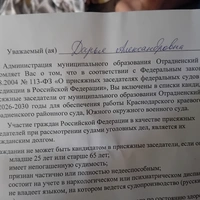 Уважаемый (ая) Дарья Александровна
Администрация муниципального образования Отрадненский
омляет Вас о том, что в соответствии с Федеральным зако
.2004 № 113-ФЗ «О присяжных заседателях федеральных судов
сдикции в Российской Федерации», Вы включены в списки канди
яжные заседатели от муниципального образования Отрадненский
2026-2030 годы для обеспечения работы Краснодарского краевого
адненского районного суда, Южного окружного военного суда.
Участие граждан Российской Федерации в качестве присяжных
дателей при рассмотрении судами уголовных дел, является их
данским долгом.
едателями не может быть кандидатом в присяжные заседатели, если
младше 25 лет или старше 65 лет;
имеет непогашенную судимость;
признан частично или полностью недееспособным;
состоит на учете в наркологическом или психоневрологическом диспан
не владеет языком, на котором ведется судопроизводство (русским